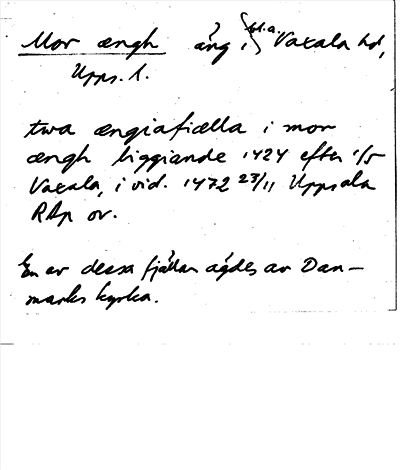 Mor ængh äng i bl.a. Vaxala hd,
Upps. l.
twa ængiafiælla i mor
ængh liggiande 1424 efter 1/5
Vaxala, i vid. 1472 23/11 Uppsala
RAp or.
En av dessa fjällar ägdes av Dan-
marks kyrka.